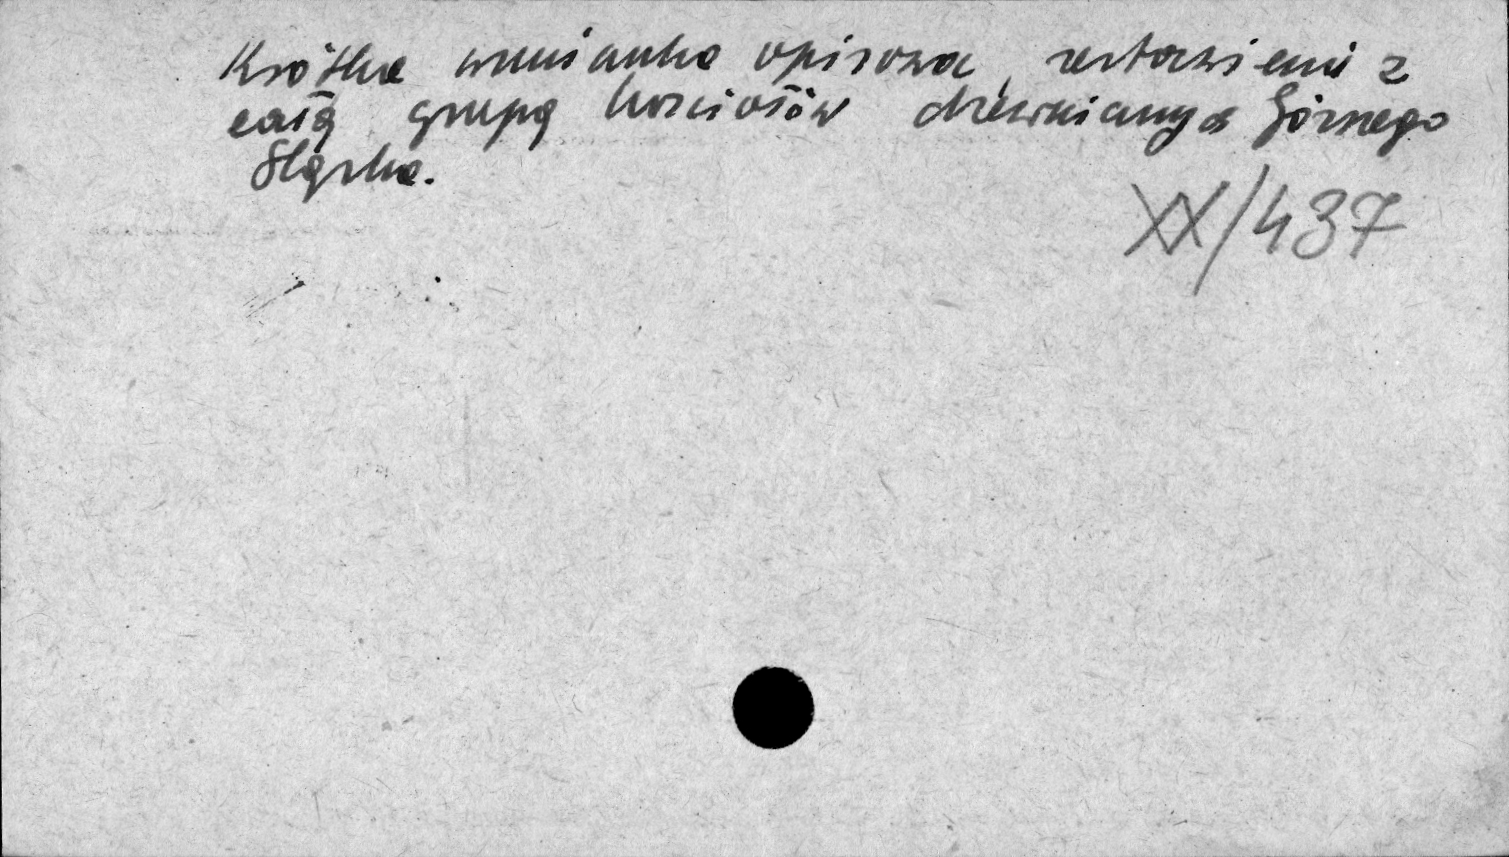 Krótka wzmianka opisowa, zestawienie z
całą grupą kościołów drewnianych Górnego
Śląska.
XX/437